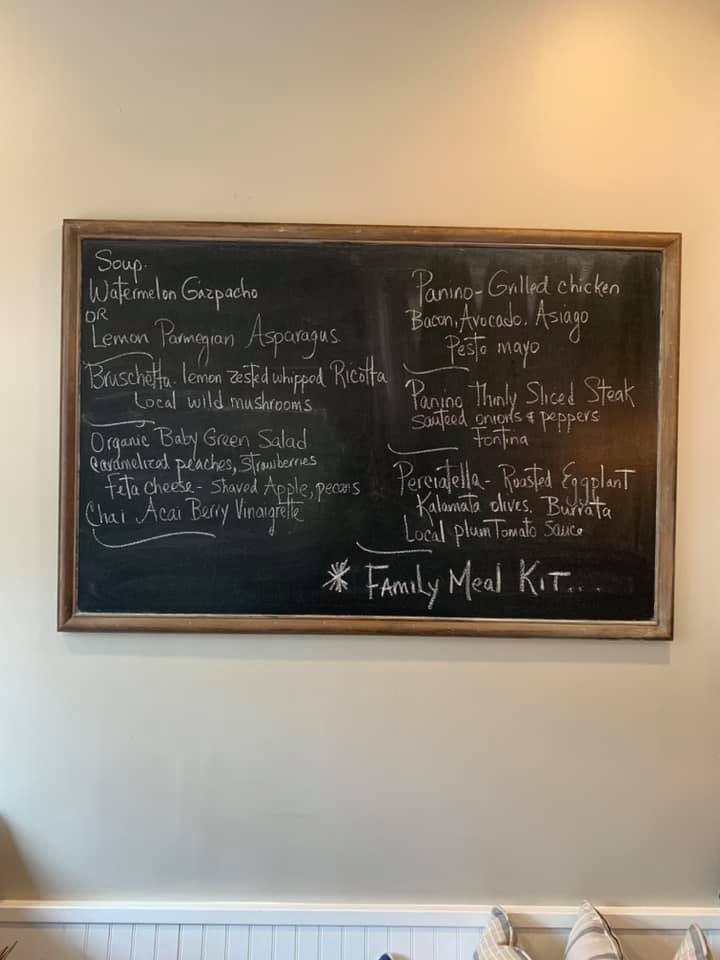 Soup.
Watermelon Gazpacho
OR
Lemon Parmegian Asparagus
Bruschetta. lemon zested whipped Ricotta
Local wild mushrooms
Organic Baby Green Salad
caramelized peaches, strawberries
Feta cheese - Shaved Apple, pecans
Chai Acai Berry Vinaigrette
Panino - Grilled chicken
Bacon, Avocado. Asiago
Pesto mayo
Panino Thinly Sliced Steak
sauteed onions & peppers
Fontina
Perciatella - Roasted Eggplant
Kalamata olives. Burrata
Local plum Tomato Sauce
* Family Meal Kit...